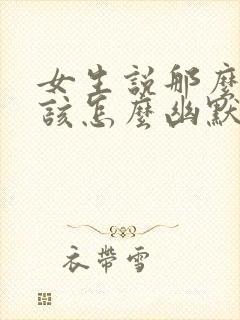 女生説那麼
該怎麼幽默
衣帶雪